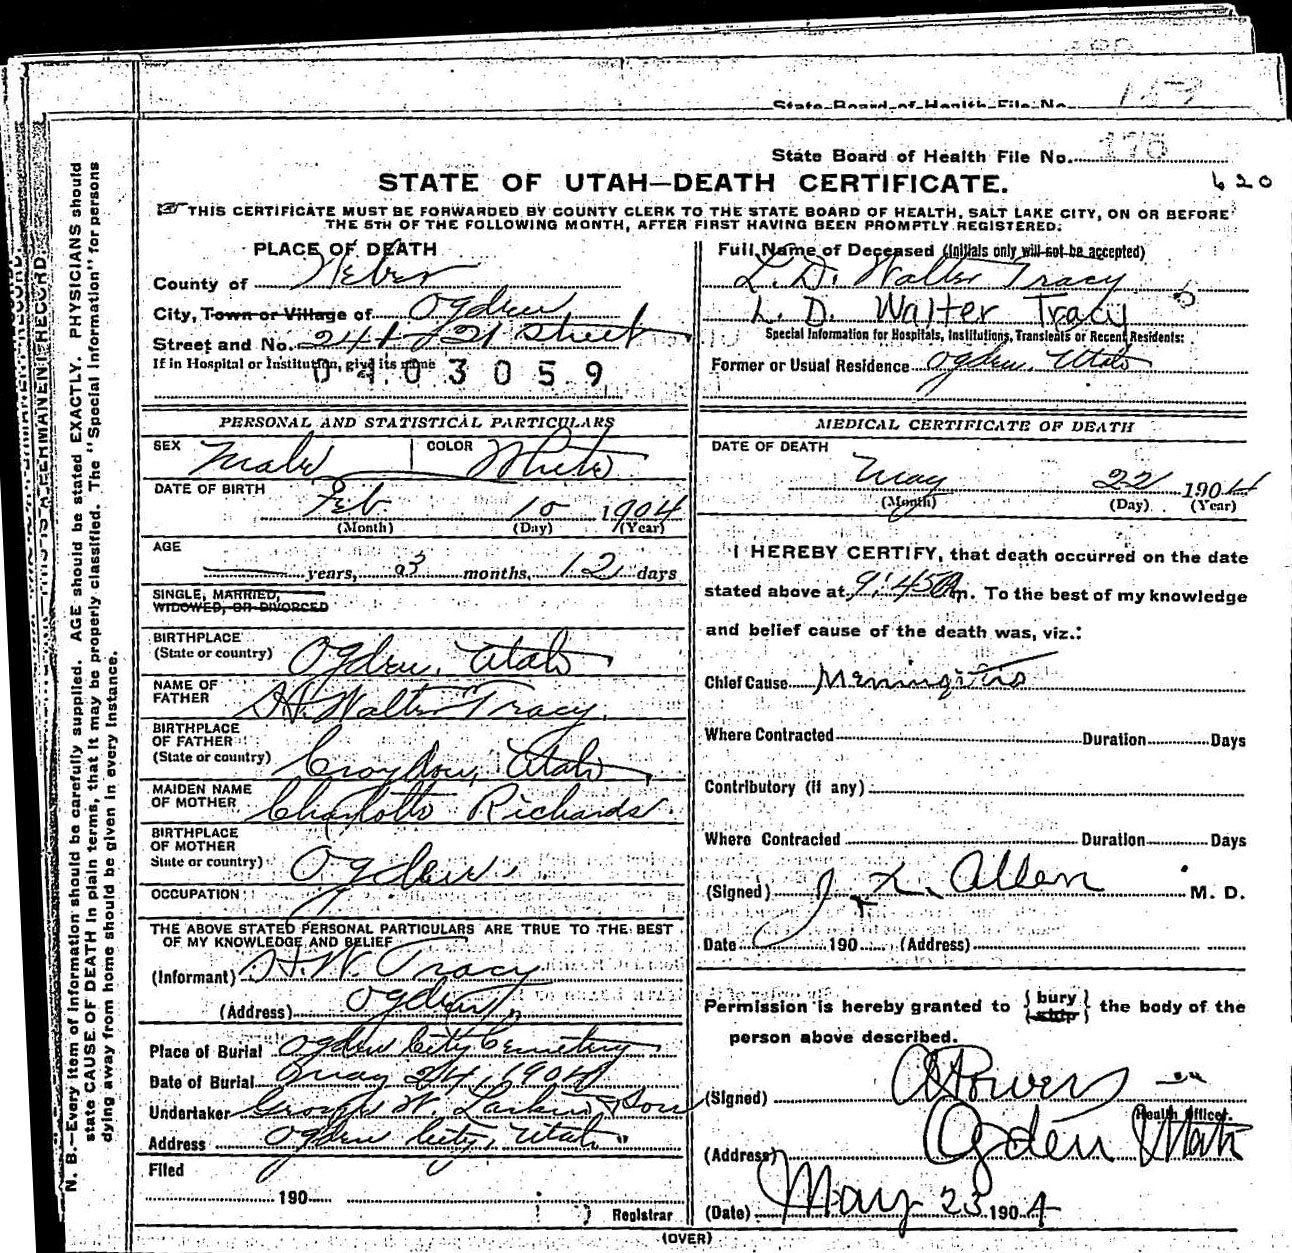 State Board of Health File No.
State Board of Health File No. 170
620
STATE OF UTAH—DEATH CERTIFICATE.
THIS CERTIFICATE MUST BE FORWARDED BY COUNTY CLERK TO THE STATE BOARD OF HEALTH, SALT LAKE CITY, ON OR BEFORE
THE 5TH OF THE FOLLOWING MONTH, AFTER FIRST HAVING BEEN PROMPTLY REGISTERED.
PLACE OF DEATH
County of Weber
City, Town or Village of Ogden
Street and No. 21 Street
If in Hospital or Institution, give its name
0403059
Full Name of Deceased (Initials only will not be accepted)
L. D. Walter Tracy
L. D. Walter Tracy
Special Information for Hospitals, Institutions, Transients or Recent Residents:
Former or Usual Residence Ogden, Utah
PERSONAL AND STATISTICAL PARTICULARS
SEX Male COLOR White
DATE OF BIRTH
Feb. 10 1904
(Month) (Day) (Year)
AGE
years, 3 months, 12 days
SINGLE, MARRIED,
WIDOWED, OR DIVORCED
BIRTHPLACE
(State or country) Ogden, Utah
NAME OF
FATHER H. Walter Tracy.
BIRTHPLACE
OF FATHER
(State or country) Croydon, Utah
MAIDEN NAME
OF MOTHER Charlotte Richards.
BIRTHPLACE
OF MOTHER
State or country) Ogden.
OCCUPATION
THE ABOVE STATED PERSONAL PARTICULARS ARE TRUE TO THE BEST
OF MY KNOWLEDGE AND BELIEF
(Informant) H. W. Tracy
(Address) Ogden
Place of Burial Ogden City Cemetery
Date of Burial May 24, 1904
Undertaker George W. Larkin & Son
Address Ogden City, Utah
Filed
190
Registrar
MEDICAL CERTIFICATE OF DEATH
DATE OF DEATH
May 22 1904
(Month) (Day) (Year)
I HEREBY CERTIFY, that death occurred on the date
stated above at 9:45 A m. To the best of my knowledge
and belief cause of the death was, viz.:
Chief Cause Meningitis
Where Contracted Duration Days
Contributory (if any)
Where Contracted Duration Days
(Signed) Allen M. D.
Date 190 (Address)
Permission is hereby granted to { bury / ship } the body of the
person above described.
(Signed) Powers
Health Officer.
(Address) Ogden Utah
(Date) May 23 1904
(OVER)
N. B.—Every item of information should be carefully supplied. AGE should be stated EXACTLY. PHYSICIANS should
state CAUSE OF DEATH in plain terms, that it may be properly classified. The "Special Information" for persons
dying away from home should be given in every instance.